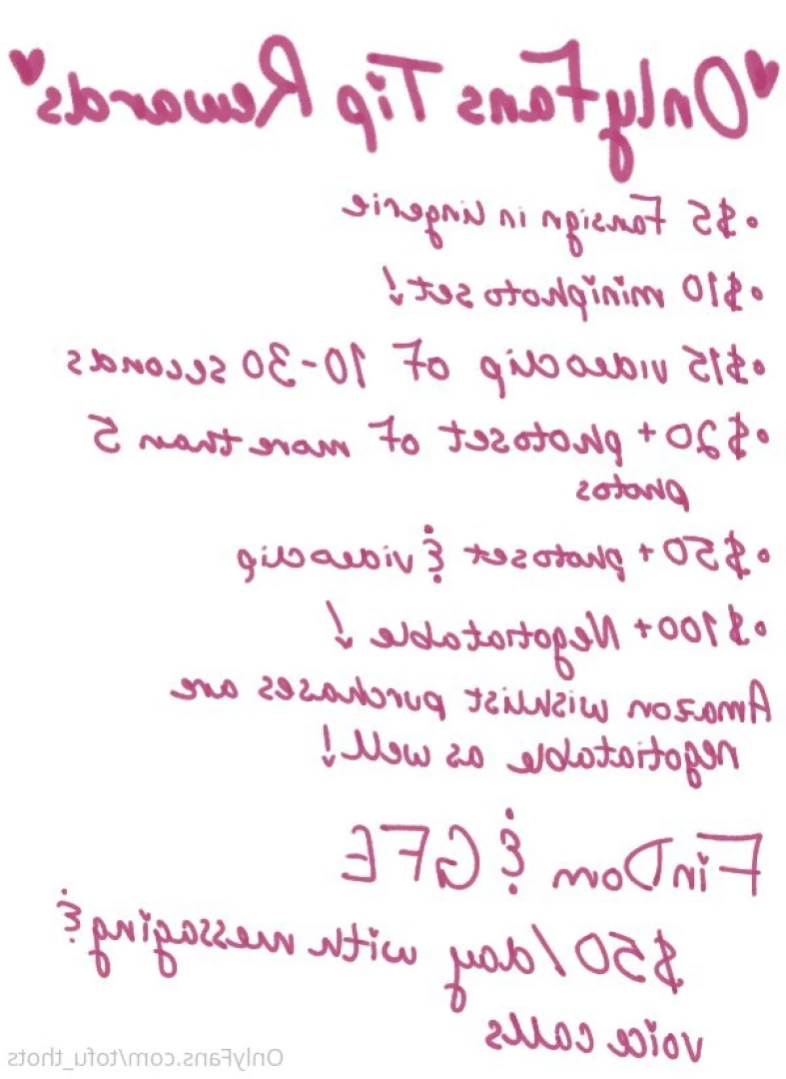 OnlyFans Tip Rewards
• $5 Fansign in lingerie
• $10 miniphotoset!
• $15 videoclip of 10-30 seconds
• $20+ photoset of more than 5
photos
• $50+ photoset & videoclip
• $100+ Negotiatable!
Amazon wishlist purchases are
negotiatable as well!
FinDom & GFE
$50/day with messaging &
voice calls
OnlyFans.com/tofu_thots